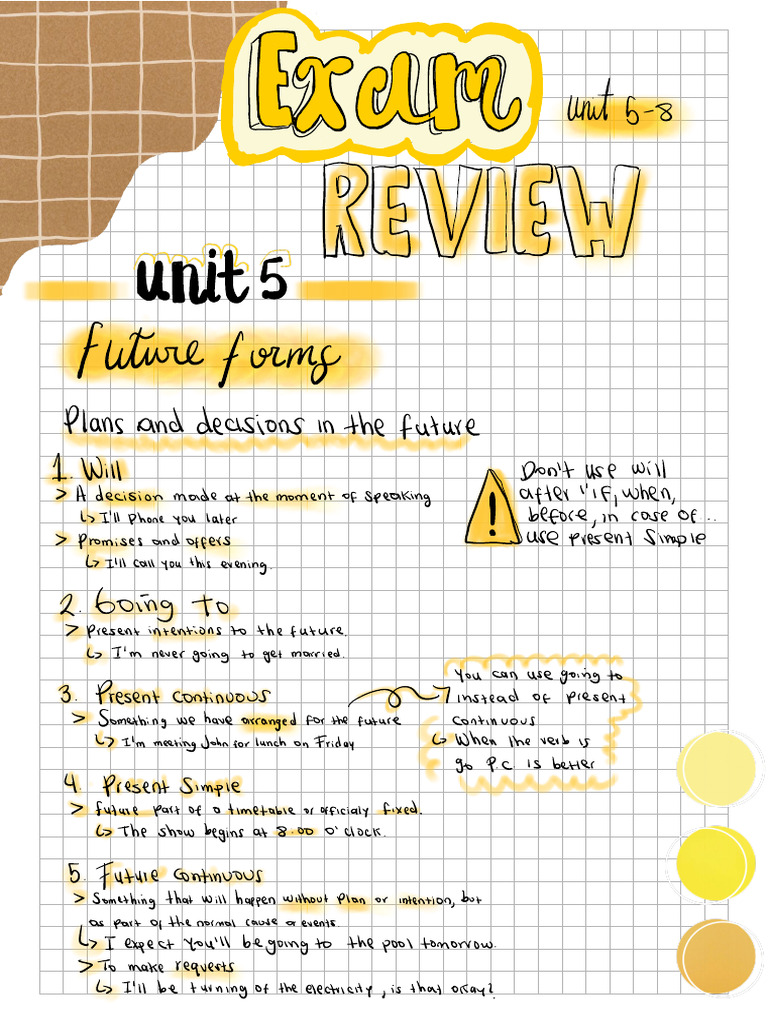 Exam
unit 5-8
REVIEW
unit 5
future forms
Plans and decisions in the future
1. Will
> A decision made at the moment of speaking
↳ I'll phone you later
> Promises and offers
↳ I'll call you this evening.
!
Don't use will
after "if, when,
before, in case of...
use present simple
2. Going to
> Present intentions to the future.
↳ I'm never going to get married.
3. Present continuous
> Something we have arranged for the future
↳ I'm meeting John for lunch on Friday
You can use going to
instead of present
continuous
↳ When the verb is
go P.c is better
4. Present Simple
> future part of a timetable or officialy fixed.
↳ The show begins at 8.00 o'clock.
5. Future continuous
> Something that will happen without plan or intention, but
as part of the normal cause or events.
↳ I expect you'll be going to the pool tomorrow.
> To make requests
↳ I'll be turning of the electricity, is that okay?